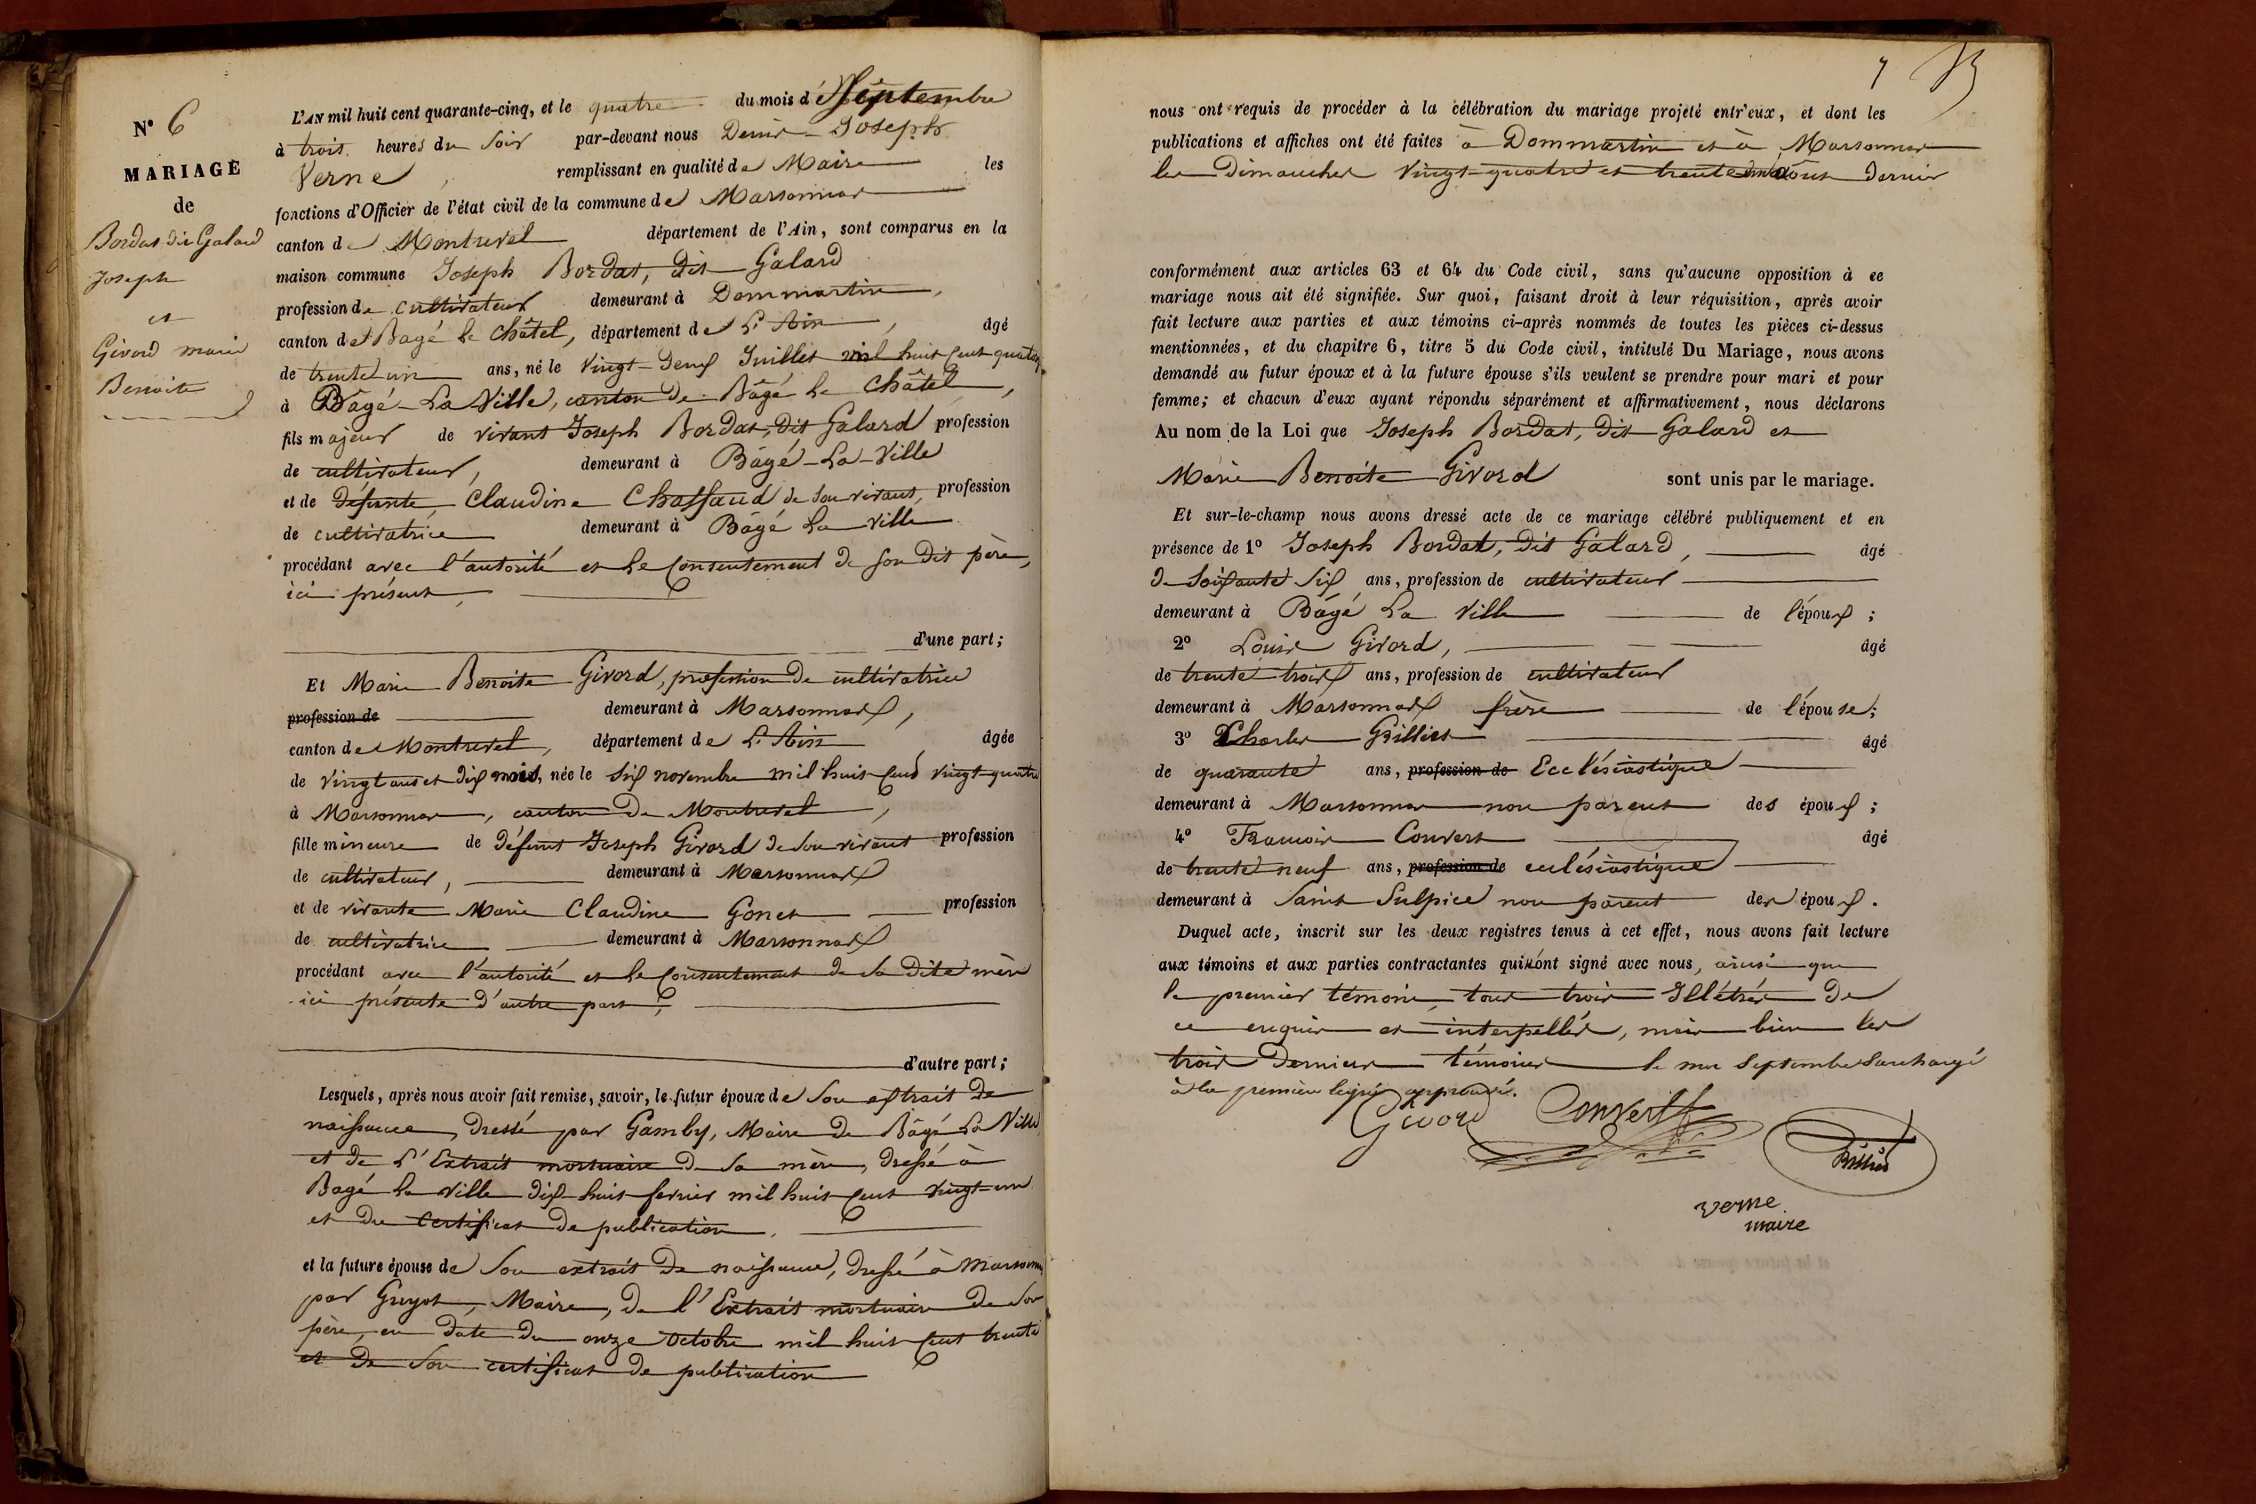 N° 6
MARIAGE
de
Bordat dit Galard
Joseph
et
Givord marie
Benoite
L'AN mil huit cent quarante-cinq, et le quatre du mois de Septembre
à trois heures du soir par-devant nous Denis-Joseph
Verne, remplissant en qualité de Maire les
fonctions d'Officier de l'état civil de la commune de Marsonnas
canton de Montrevel département de l'Ain, sont comparus en la
maison commune Joseph Bordat, dit Galard
profession de cultivateur demeurant à Dommartin,
canton de Bagé le Châtel, département de L'Ain, âgé
de trente un ans, né le vingt-deux Juillet mil huit cent quatorze
à Bâgé-La-Ville, canton de Bâgé le Châtel,
fils majeur de vivant Joseph Bordat, dit Galard profession
de cultivateur, demeurant à Bâgé-La-Ville
et de défunte Claudine Chassaud de son vivant, profession
de cultivatrice demeurant à Bâgé La ville
procédant avec l'autorité et le consentement de son dit père,
ici présent,
d'une part;
Et Marie Benoite Givord, profession de cultivatrice
profession de demeurant à Marsonnas,
canton de Montrevel, département de L'Ain âgée
de vingt ans et dix mois, née le six novembre mil huit cent vingt-quatre
à Marsonnas, canton de Montrevel,
fille mineure de défunt Joseph Givord de son vivant profession
de cultivateur, demeurant à Marsonnas
et de vivante Marie Claudine Gonet profession
de cultivatrice demeurant à Marsonnas
procédant avec l'autorité et le consentement de sa dite mère
ici présente d'autre part;
d'autre part;
Lesquels, après nous avoir fait remise, savoir, le futur époux de son extrait de
naissance, dressé par Gamby, Maire de Bâgé La Ville
et de L'Extrait mortuaire de sa mère, dressé à
Bagé la ville dix-huit fevrier mil huit cent vingt-un
et du certificat de publication.
et la future épouse de son extrait de naissance, dressé à Marsonnas
par Guyot, Maire, de l'Extrait mortuaire de son
père, en date du onze octobre mil huit cent trente
et de son certificat de publication
7
nous ont requis de procéder à la célébration du mariage projeté entr'eux, et dont les
publications et affiches ont été faites à Dommartin et à Marsonnas
les Dimanches vingt-quatre et trente un août dernier
conformément aux articles 63 et 64 du Code civil, sans qu'aucune opposition à ce
mariage nous ait été signifiée. Sur quoi, faisant droit à leur réquisition, après avoir
fait lecture aux parties et aux témoins ci-après nommés de toutes les pièces ci-dessus
mentionnées, et du chapitre 6, titre 5 du Code civil, intitulé Du Mariage, nous avons
demandé au futur époux et à la future épouse s'ils veulent se prendre pour mari et pour
femme; et chacun d'eux ayant répondu séparément et affirmativement, nous déclarons
Au nom de la Loi que Joseph Bordat, dit Galard et
Marie Benoite Givord sont unis par le mariage.
Et sur-le-champ nous avons dressé acte de ce mariage célébré publiquement et en
présence de 1° Joseph Bordat, dit Galard, âgé
de soixante six ans, profession de cultivateur
demeurant à Bâgé La Ville de l'époux;
2° Louis Givord, âgé
de trente trois ans, profession de cultivateur
demeurant à Marsonnas frère de l'épouse;
3° Charles Billiet âgé
de quarante ans, profession de Ecclésiastique
demeurant à Marsonnas non parent des époux;
4° Francois Convert âgé
de trente neuf ans, profession de ecclésiastique
demeurant à Saint Sulpice non parent des époux.
Duquel acte, inscrit sur les deux registres tenus à cet effet, nous avons fait lecture
aux témoins et aux parties contractantes qui n'ont signé avec nous, ainsi que
le premier témoin, tous trois Illétrés de
ce enquis et interpellés, mais bien les
trois derniers témoins le mot Septembre surchargé
à la première ligne approuvé.
Givord Convert
Billiet
verne
maire